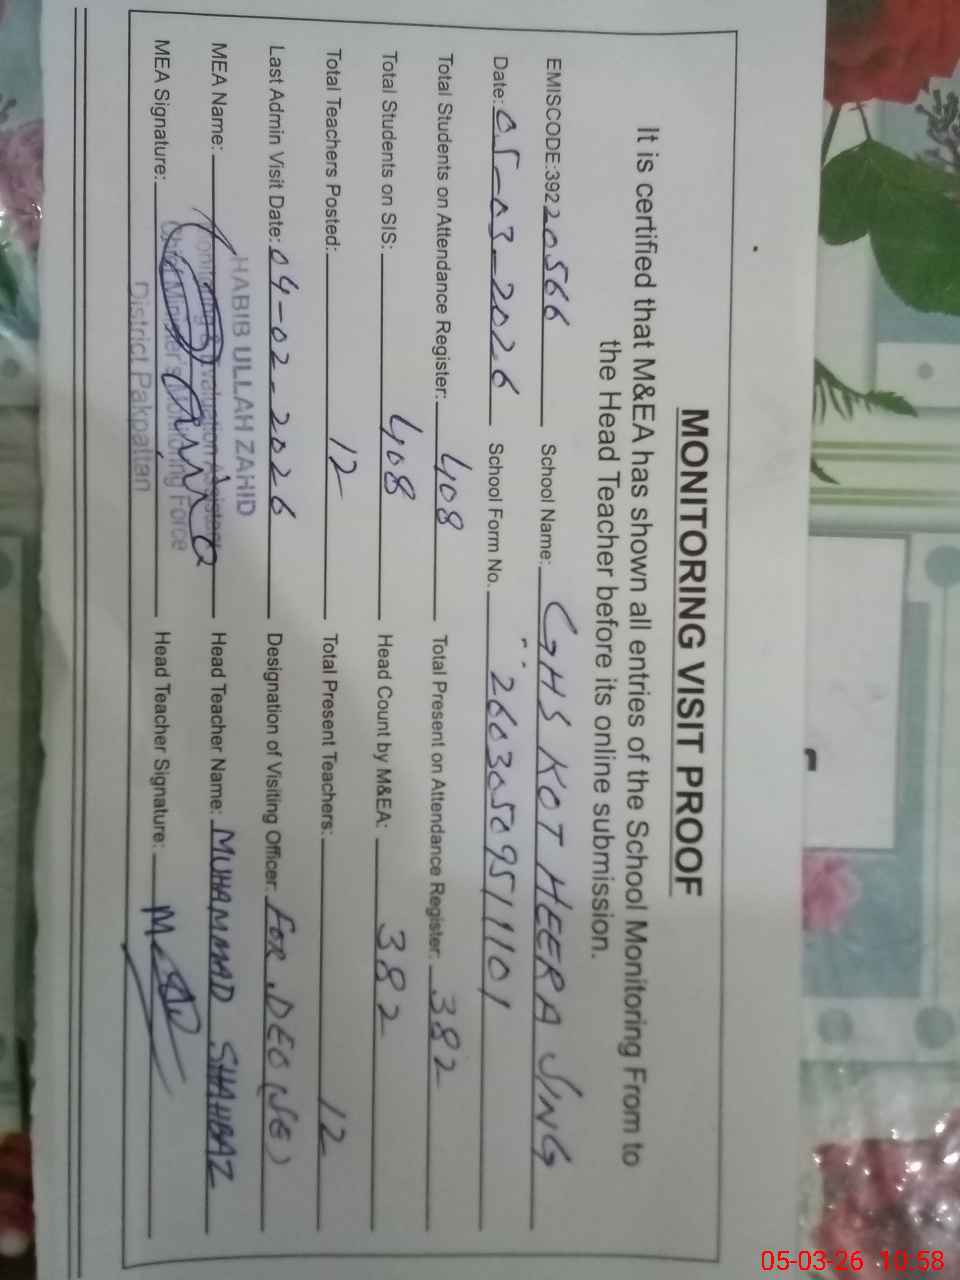 MONITORING VISIT PROOF
It is certified that M&EA has shown all entries of the School Monitoring From to
the Head Teacher before its online submission.
EMISCODE:39220566 School Name: GHS KOT HEERA SING
Date: 05-03-2026 School Form No. 26030509511101
Total Students on Attendance Register: 408 Total Present on Attendance Register: 382
Total Students on SIS: 408 Head Count by M&EA: 382
Total Teachers Posted: 12 Total Present Teachers: 12
Last Admin Visit Date: 04-02-2026 Designation of Visiting Officer. FOR. DEO (SE)
MEA Name: Head Teacher Name: MUHAMMAD SHAHBAZ
MEA Signature: Head Teacher Signature:
HABIB ULLAH ZAHID
Monitoring & Evaluation Assistant
Chief Minister's Monitoring Force
District Pakpattan
05-03-26 10:58